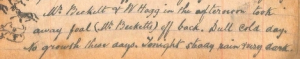 Mr Beckett & W Hagg in the afternoon took
away foal (Mr Becketts) off back. Dull cold day.
No growth these days. Tonight steady rain very dark.